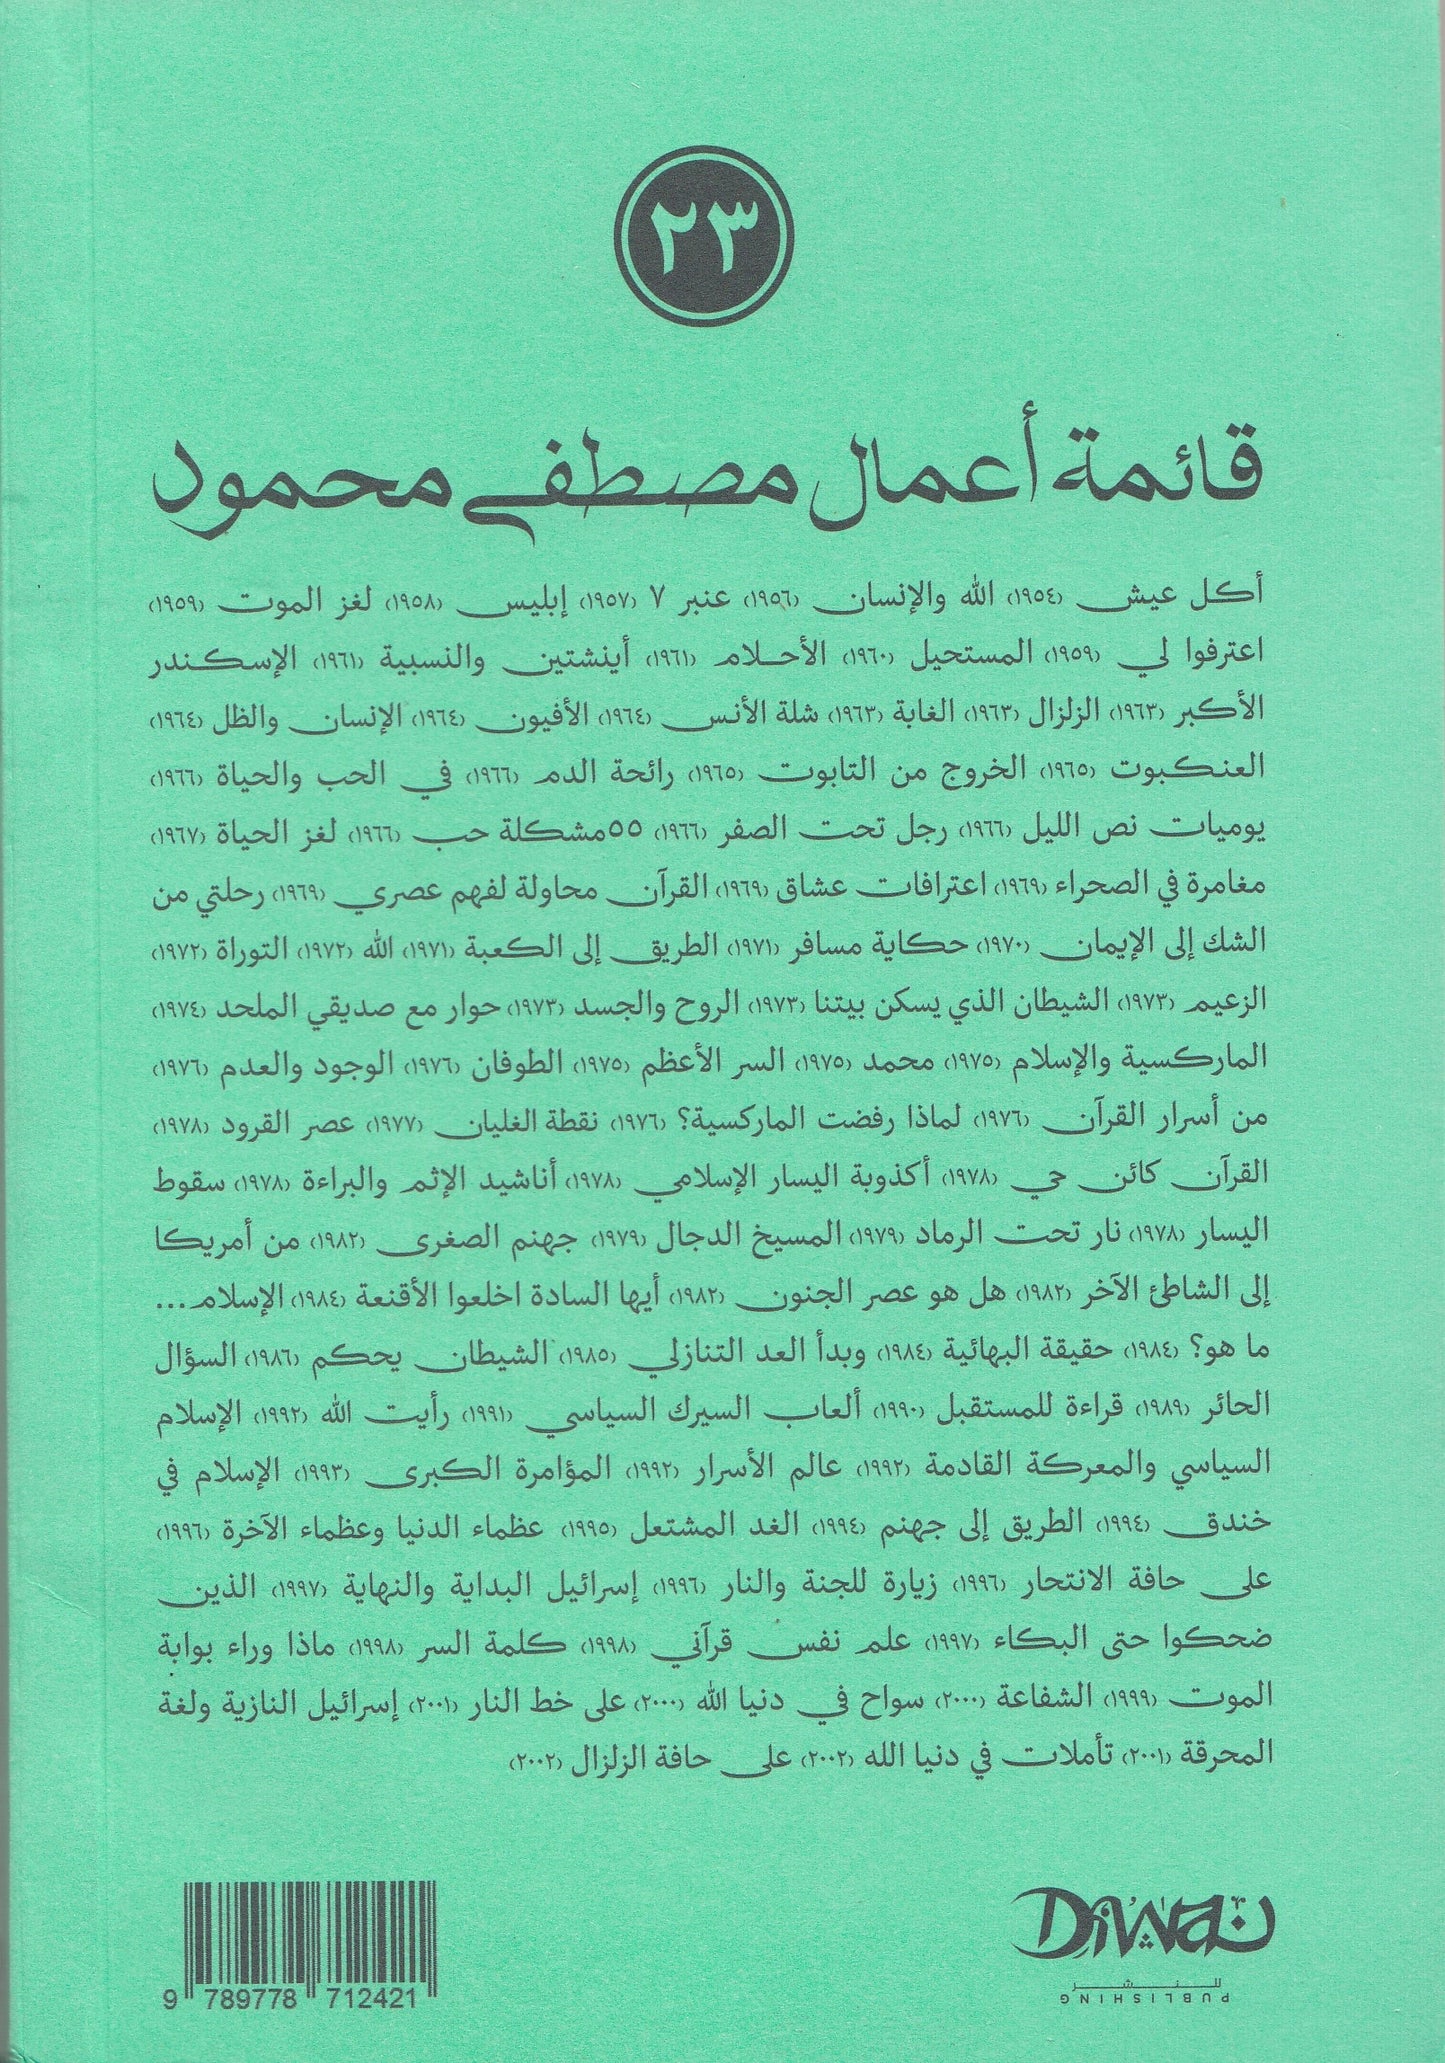 ٢٣
قائمة أعمال مصطفى محمود
أكل عيش (١٩٥٤) الله والإنسان (١٩٥٦) عنبر ٧ (١٩٥٧) إبليس (١٩٥٨) لغز الموت (١٩٥٩)
اعترفوا لي (١٩٥٩) المستحيل (١٩٦٠) الأحلام (١٩٦١) أينشتين والنسبية (١٩٦١) الإسكندر
الأكبر (١٩٦٣) الزلزال (١٩٦٣) الغابة (١٩٦٣) شلة الأنس (١٩٦٤) الأفيون (١٩٦٤) الإنسان والظل (١٩٦٤)
العنكبوت (١٩٦٥) الخروج من التابوت (١٩٦٥) رائحة الدم (١٩٦٦) في الحب والحياة (١٩٦٦)
يوميات نص الليل (١٩٦٦) رجل تحت الصفر (١٩٦٦) ٥٥مشكلة حب (١٩٦٦) لغز الحياة (١٩٦٧)
مغامرة في الصحراء (١٩٦٩) اعترافات عشاق (١٩٦٩) القرآن محاولة لفهم عصري (١٩٦٩) رحلتي من
الشك إلى الإيمان (١٩٧٠) حكاية مسافر (١٩٧١) الطريق إلى الكعبة (١٩٧١) الله (١٩٧٢) التوراة (١٩٧٢)
الزعيم (١٩٧٣) الشيطان الذي يسكن بيتنا (١٩٧٣) الروح والجسد (١٩٧٣) حوار مع صديقي الملحد (١٩٧٤)
الماركسية والإسلام (١٩٧٥) محمد (١٩٧٥) السر الأعظم (١٩٧٥) الطوفان (١٩٧٦) الوجود والعدم (١٩٧٦)
من أسرار القرآن (١٩٧٦) لماذا رفضت الماركسية؟ (١٩٧٦) نقطة الغليان (١٩٧٧) عصر القرود (١٩٧٨)
القرآن كائن حي (١٩٧٨) أكذوبة اليسار الإسلامي (١٩٧٨) أناشيد الإثم والبراءة (١٩٧٨) سقوط
اليسار (١٩٧٨) نار تحت الرماد (١٩٧٩) المسيخ الدجال (١٩٧٩) جهنم الصغرى (١٩٨٢) من أمريكا
إلى الشاطئ الآخر (١٩٨٢) هل هو عصر الجنون (١٩٨٢) أيها السادة اخلعوا الأقنعة (١٩٨٤) الإسلام...
ما هو؟ (١٩٨٤) حقيقة البهائية (١٩٨٤) وبدأ العد التنازلي (١٩٨٥) الشيطان يحكم (١٩٨٦) السؤال
الحائر (١٩٨٩) قراءة للمستقبل (١٩٩٠) ألعاب السيرك السياسي (١٩٩١) رأيت الله (١٩٩٢) الإسلام
السياسي والمعركة القادمة (١٩٩٢) عالم الأسرار (١٩٩٢) المؤامرة الكبرى (١٩٩٣) الإسلام في
خندق (١٩٩٤) الطريق إلى جهنم (١٩٩٤) الغد المشتعل (١٩٩٥) عظماء الدنيا وعظماء الآخرة (١٩٩٦)
على حافة الانتحار (١٩٩٦) زيارة للجنة والنار (١٩٩٦) إسرائيل البداية والنهاية (١٩٩٧) الذين
ضحكوا حتى البكاء (١٩٩٧) علم نفس قرآني (١٩٩٨) كلمة السر (١٩٩٨) ماذا وراء بوابة
الموت (١٩٩٩) الشفاعة (٢٠٠٠) سواح في دنيا الله (٢٠٠٠) على خط النار (٢٠٠١) إسرائيل النازية ولغة
المحرقة (٢٠٠١) تأملات في دنيا الله (٢٠٠٢) على حافة الزلزال (٢٠٠٢)
9 789778 712421
DIWAN
للنشر
PUBLISHING